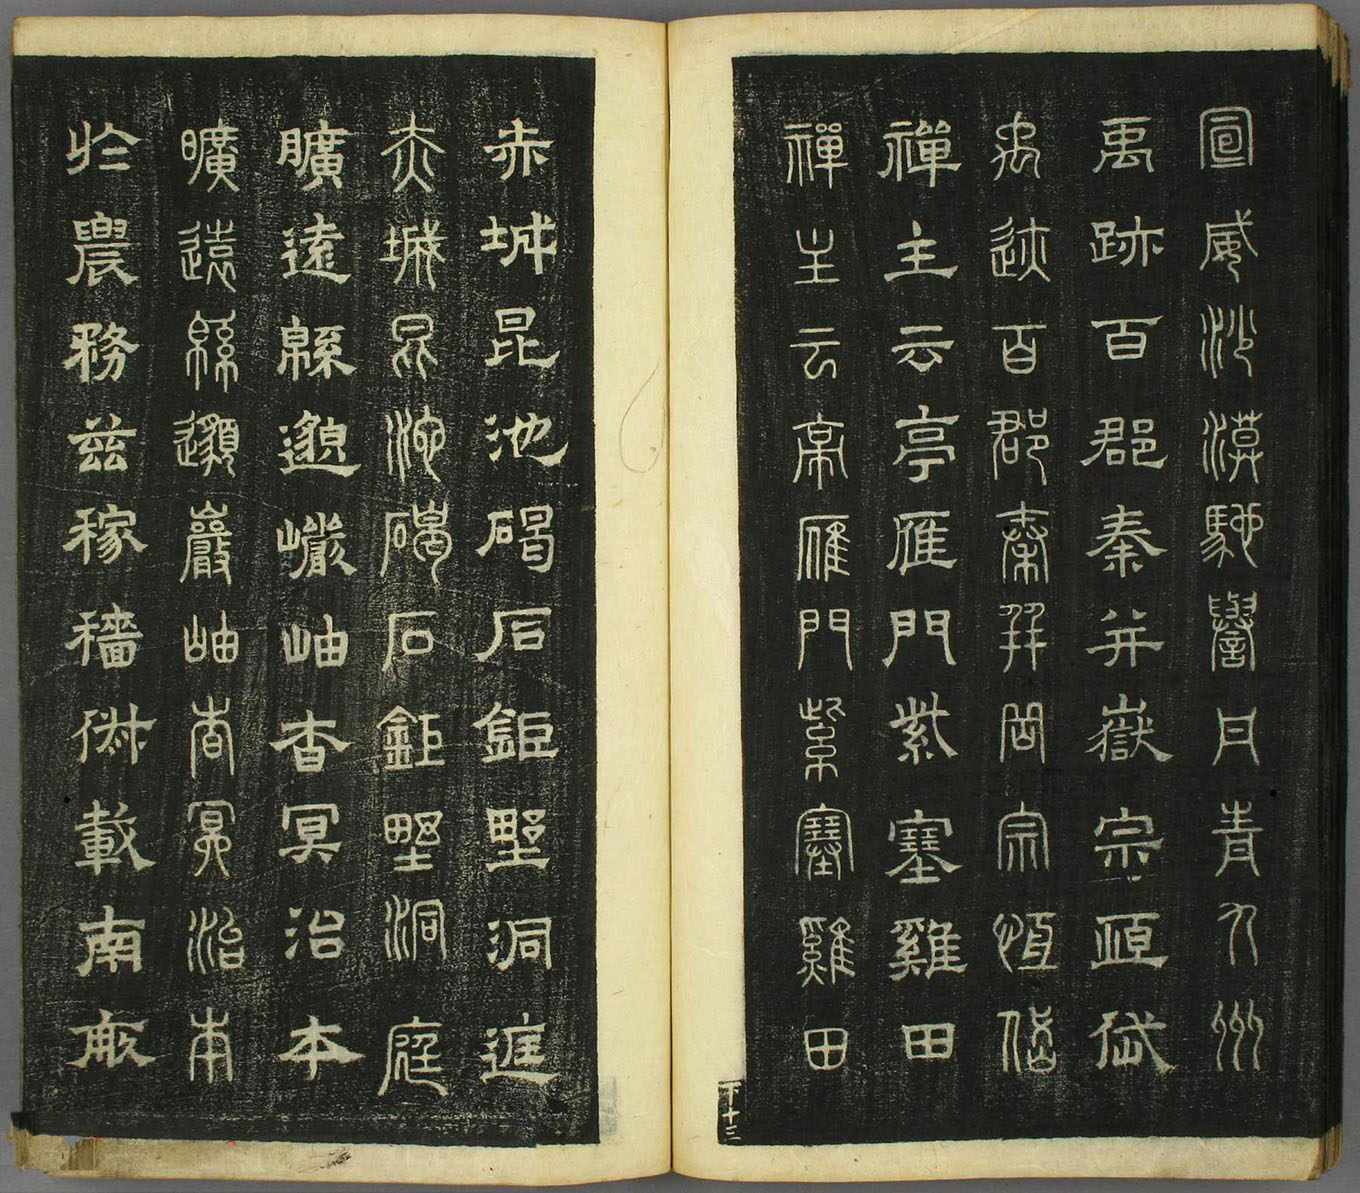 宣威沙漠馳譽丹青九州
禹跡百郡秦并嶽宗恆岱
禹迹百郡秦并岡宗恆岱
禪主云亭雁門紫塞雞田
禪主云亭雁門紫塞雞田
下十三
赤城昆池碣石鉅野洞庭
赤城昆池碣石鉅野洞庭
曠遠緜邈巖岫杳冥治本
曠遠緜邈巖岫杳冥治本
於農務茲稼穡俶載南畝